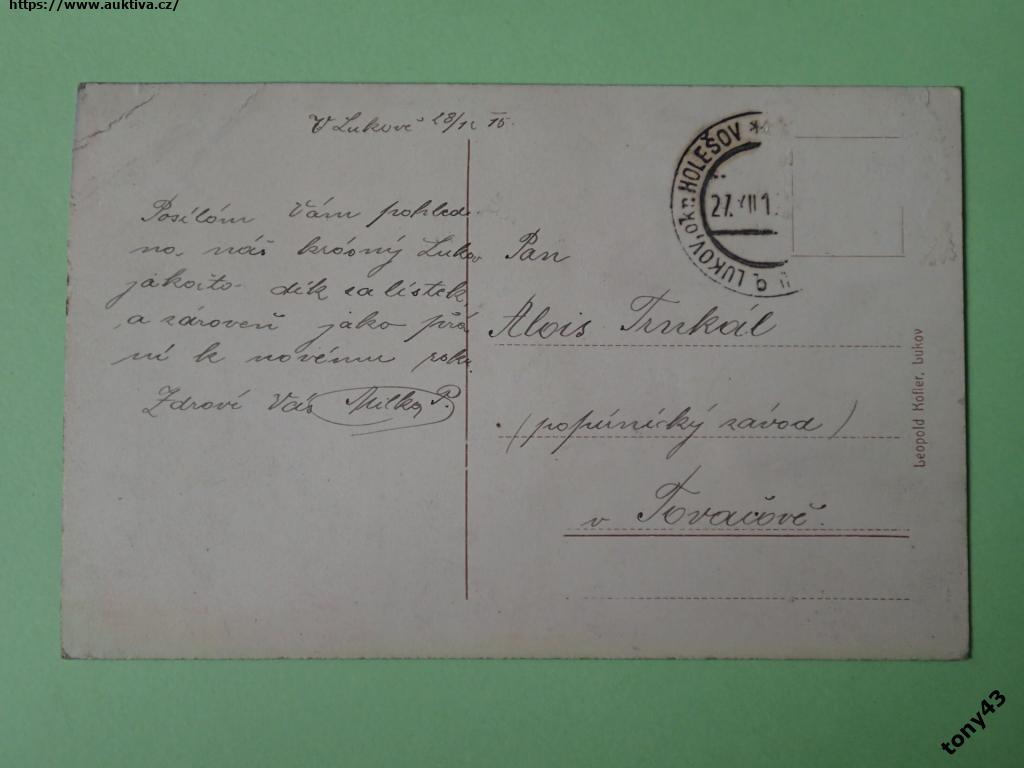 https://www.auktiva.cz/
V Lukově 28/12 15.
Posílám Vám pohled
na, náš krásný Lukov
jakožto dík za lístek,
a zároveň jako přá
ní k novému roku.
Zdraví Vás Milka P.
LUKOV, okr. HOLEŠOV *
27. VII 1
Pan
Alois Trnkál
( papírnický závod )
v Tovačově.
Leopold Kofler, Lukov
tony43